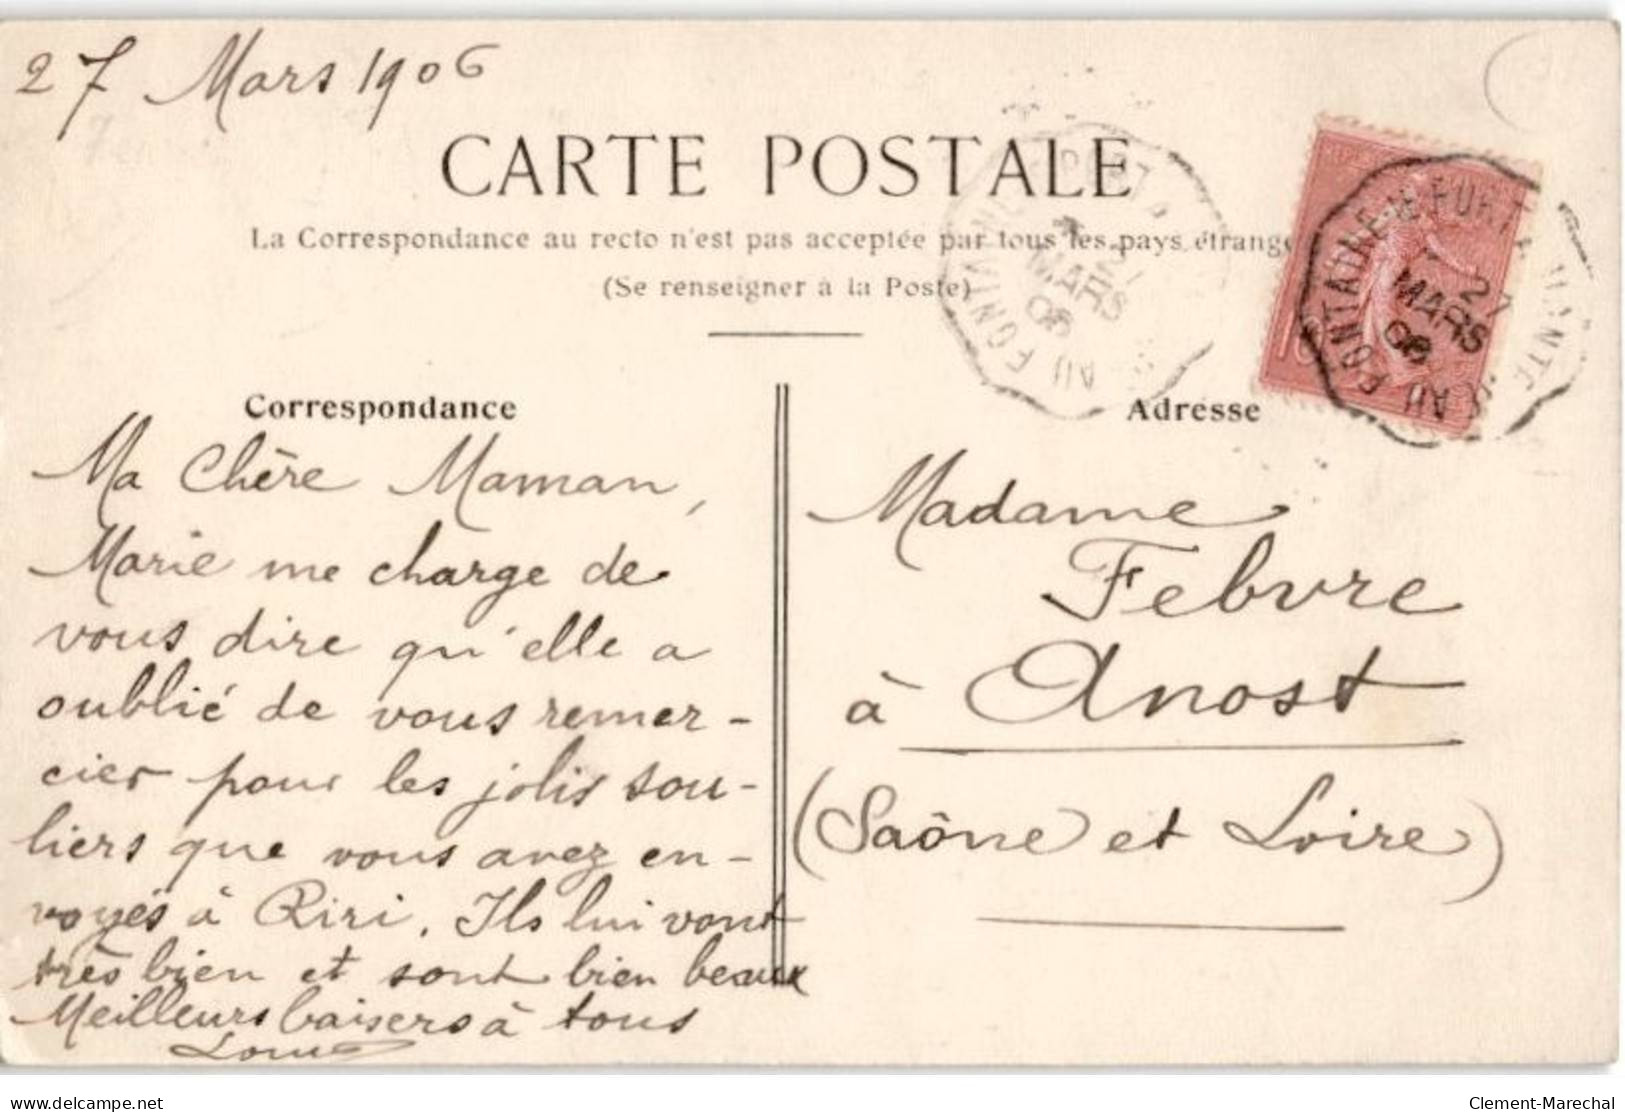 27 Mars 1906
CARTE POSTALE
La Correspondance au recto n'est pas acceptée par tous les pays étrange
(Se renseigner à la Poste)
Correspondance
Ma Chère Maman,
Marie me charge de
vous dire qu'elle a
oublié de vous remer-
cier pour les jolis sou-
liers que vous avez en-
voyés à Riri. Ils lui vont
très bien et sont bien beaux
Meilleurs baisers à tous
Louis
Adresse
Madame
Febvre
à Anost
(Saône et Loire)
27
MARS
06
MARS
06
www.delcampe.net
Clement-Marechal